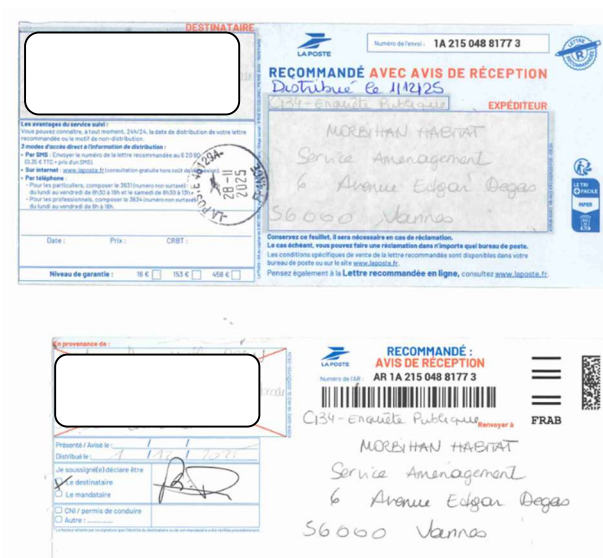 DESTINATAIRE
LA POSTE
Numéro de l'envoi : 1A 215 048 8177 3
LETTRE RECOMMANDÉE
RECOMMANDÉ AVEC AVIS DE RÉCEPTION
Distribué le 1/12/25
C134-Enquête Publique
EXPÉDITEUR
MORBIHAN HABITAT
Service Amenagement
6 Avenue Edgar Degas
56000 Vannes
LE TRI
+ FACILE
PAPIER
Les avantages du service suivi :
Vous pouvez connaître, à tout moment, 24h/24, la date de distribution de votre lettre
recommandée ou le motif de non-distribution.
3 modes d'accès direct à l'information de distribution :
• Par SMS : Envoyer le numéro de la lettre recommandée au 6 20 80
(0,35 € TTC + prix d'un SMS)
• Sur internet : www.laposte.fr (consultation gratuite hors coût de
• Par téléphone :
- Pour les particuliers, composer le 3631 (numéro non surtaxé)
du lundi au vendredi de 8h30 à 19h et le samedi de 8h30 à 13h
- Pour les professionnels, composer le 3634 (numéro non surtaxé)
du lundi au vendredi de 8h à 18h.
LA POSTE
28-11
2025
Date : Prix : CRBT :
Niveau de garantie : 16 € 153 € 458 €
Conservez ce feuillet, il sera nécessaire en cas de réclamation.
Le cas échéant, vous pouvez faire une réclamation dans n'importe quel bureau de poste.
Les conditions spécifiques de vente de la lettre recommandée sont disponibles dans votre
bureau de poste ou sur le site www.laposte.fr.
Pensez également à la Lettre recommandée en ligne, consultez www.laposte.fr.
En provenance de :
LA POSTE
RECOMMANDÉ :
AVIS DE RÉCEPTION
Numéro de l'AR : AR 1A 215 048 8177 3
C134-Enquête Publique
Renvoyer à
FRAB
MORBIHAN HABITAT
Service Amenagement
6 Avenue Edgar Degas
56000 Vannes
Présenté / Avisé le : / /
Distribué le : 1 / 12 / 2025
Je soussigné(e) déclare être
Le destinataire
Le mandataire
CNI / permis de conduire
Autre :